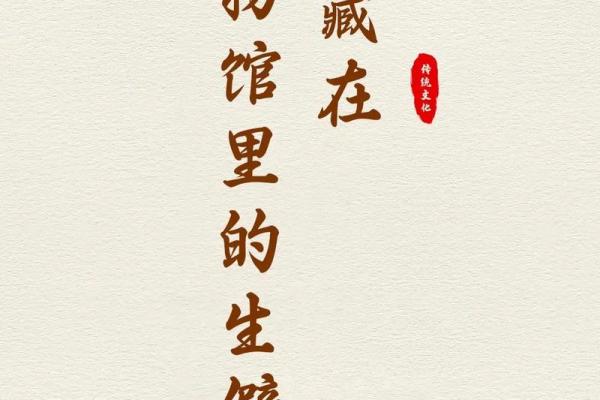 传统文化
藏在
物馆里的生僻